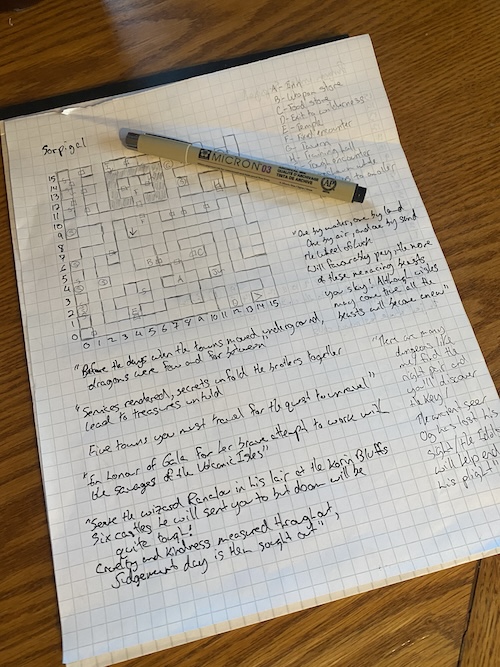 Sorpigal
A - Inn
B - Weapon store
C - Food store
D - Exit to wilderness
E - Temple
MICRON 03
AP
15
14
13
12
11
10
9
8
7
6
5
4
3
2
1
0
0 1 2 3 4 5 6 7 8 9 10 11 12 13 14 15
"One by water, one by land
One by air, and one by sand
the Wheel of Luck
Will favourably pay, the more
of these menacing beasts
you slay! Although wishes
may come true all the
beasts will become anew"
"Before the days when the towns moved underground,
dragons were few and far between"
"Services rendered, secrets unfold the brothers together
Lead to treasures untold
Five towns you must travel for the quest to unravel"
"In Honour of Gala for her brave attempt to work with
the savages of the Volcanic Isles"
"Seek the wizard Ranalou in his lair at the Korin Bluffs
Six castles he will send you to but doom will be
quite tough!
Cruelty and Kindness measured throughout,
Judgement day is then sought out"
"There are many
dungeons like
me, find the
right pair and
you'll discover
a key!
The ancient seer
Og has lost his
Sight, the Idols
will help end
his plight"